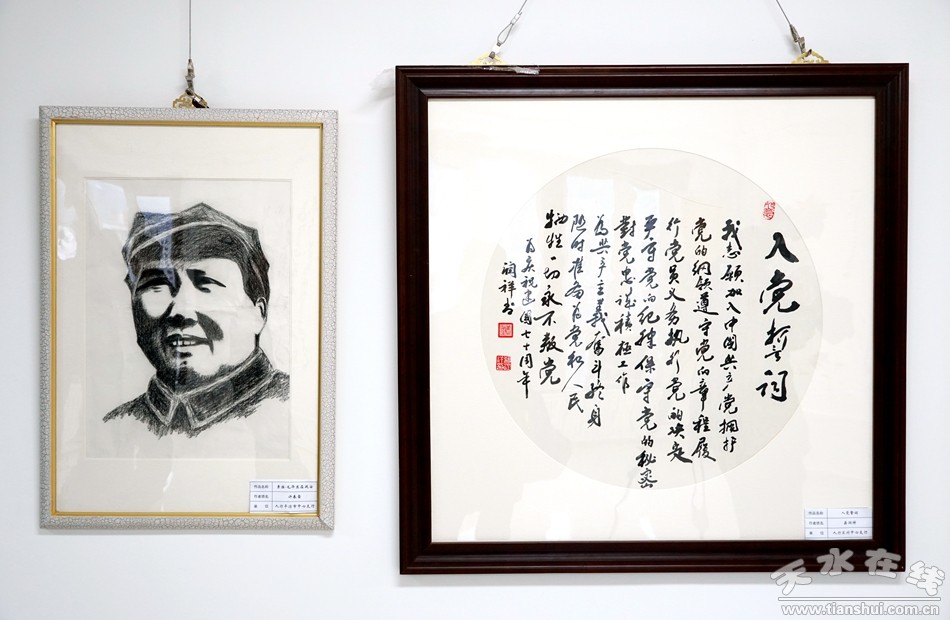 入党誓词
我志愿加入中国共产党拥护
党的纲领遵守党的章程履
行党员义务执行党的决定
严守党的纪律保守党的秘密
對党忠诚積極工作
為共产主義奋斗终身
随时准备为党和人民
牺牲一切永不叛党
为庆祝建國七十周年
润祥书
作品名称
作者姓名
单 位
作品名称 入党誓词
作者姓名
单 位
天水在线
www.tianshui.com.cn